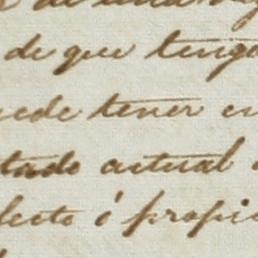 de una
de que tengo
uede tener en
tado actual
fecto ó propi